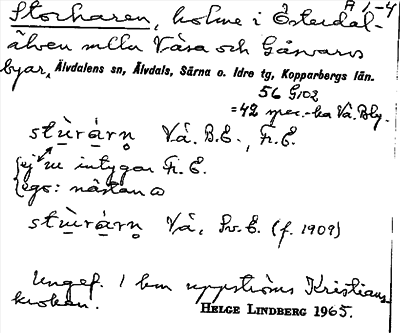 Storharen, holme i Österdal- A 1-4
älven mlln Våsa och Gåsvarvs
byar, Älvdalens sn, Älvdals, Särna o. Idre tg, Kopparbergs län.
56 G102
=42 spec.-ka Vå. Blg.
stùrárn̥ Vå. B.E., Fr.E.
ej ɯ intygar Fr. E.
egs: nästan
stùrárn̥ Vå, Sv.E. (f. 1909)
Ungef. 1 km uppströms Kristians-
kroken.
HELGE LINDBERG 1965.